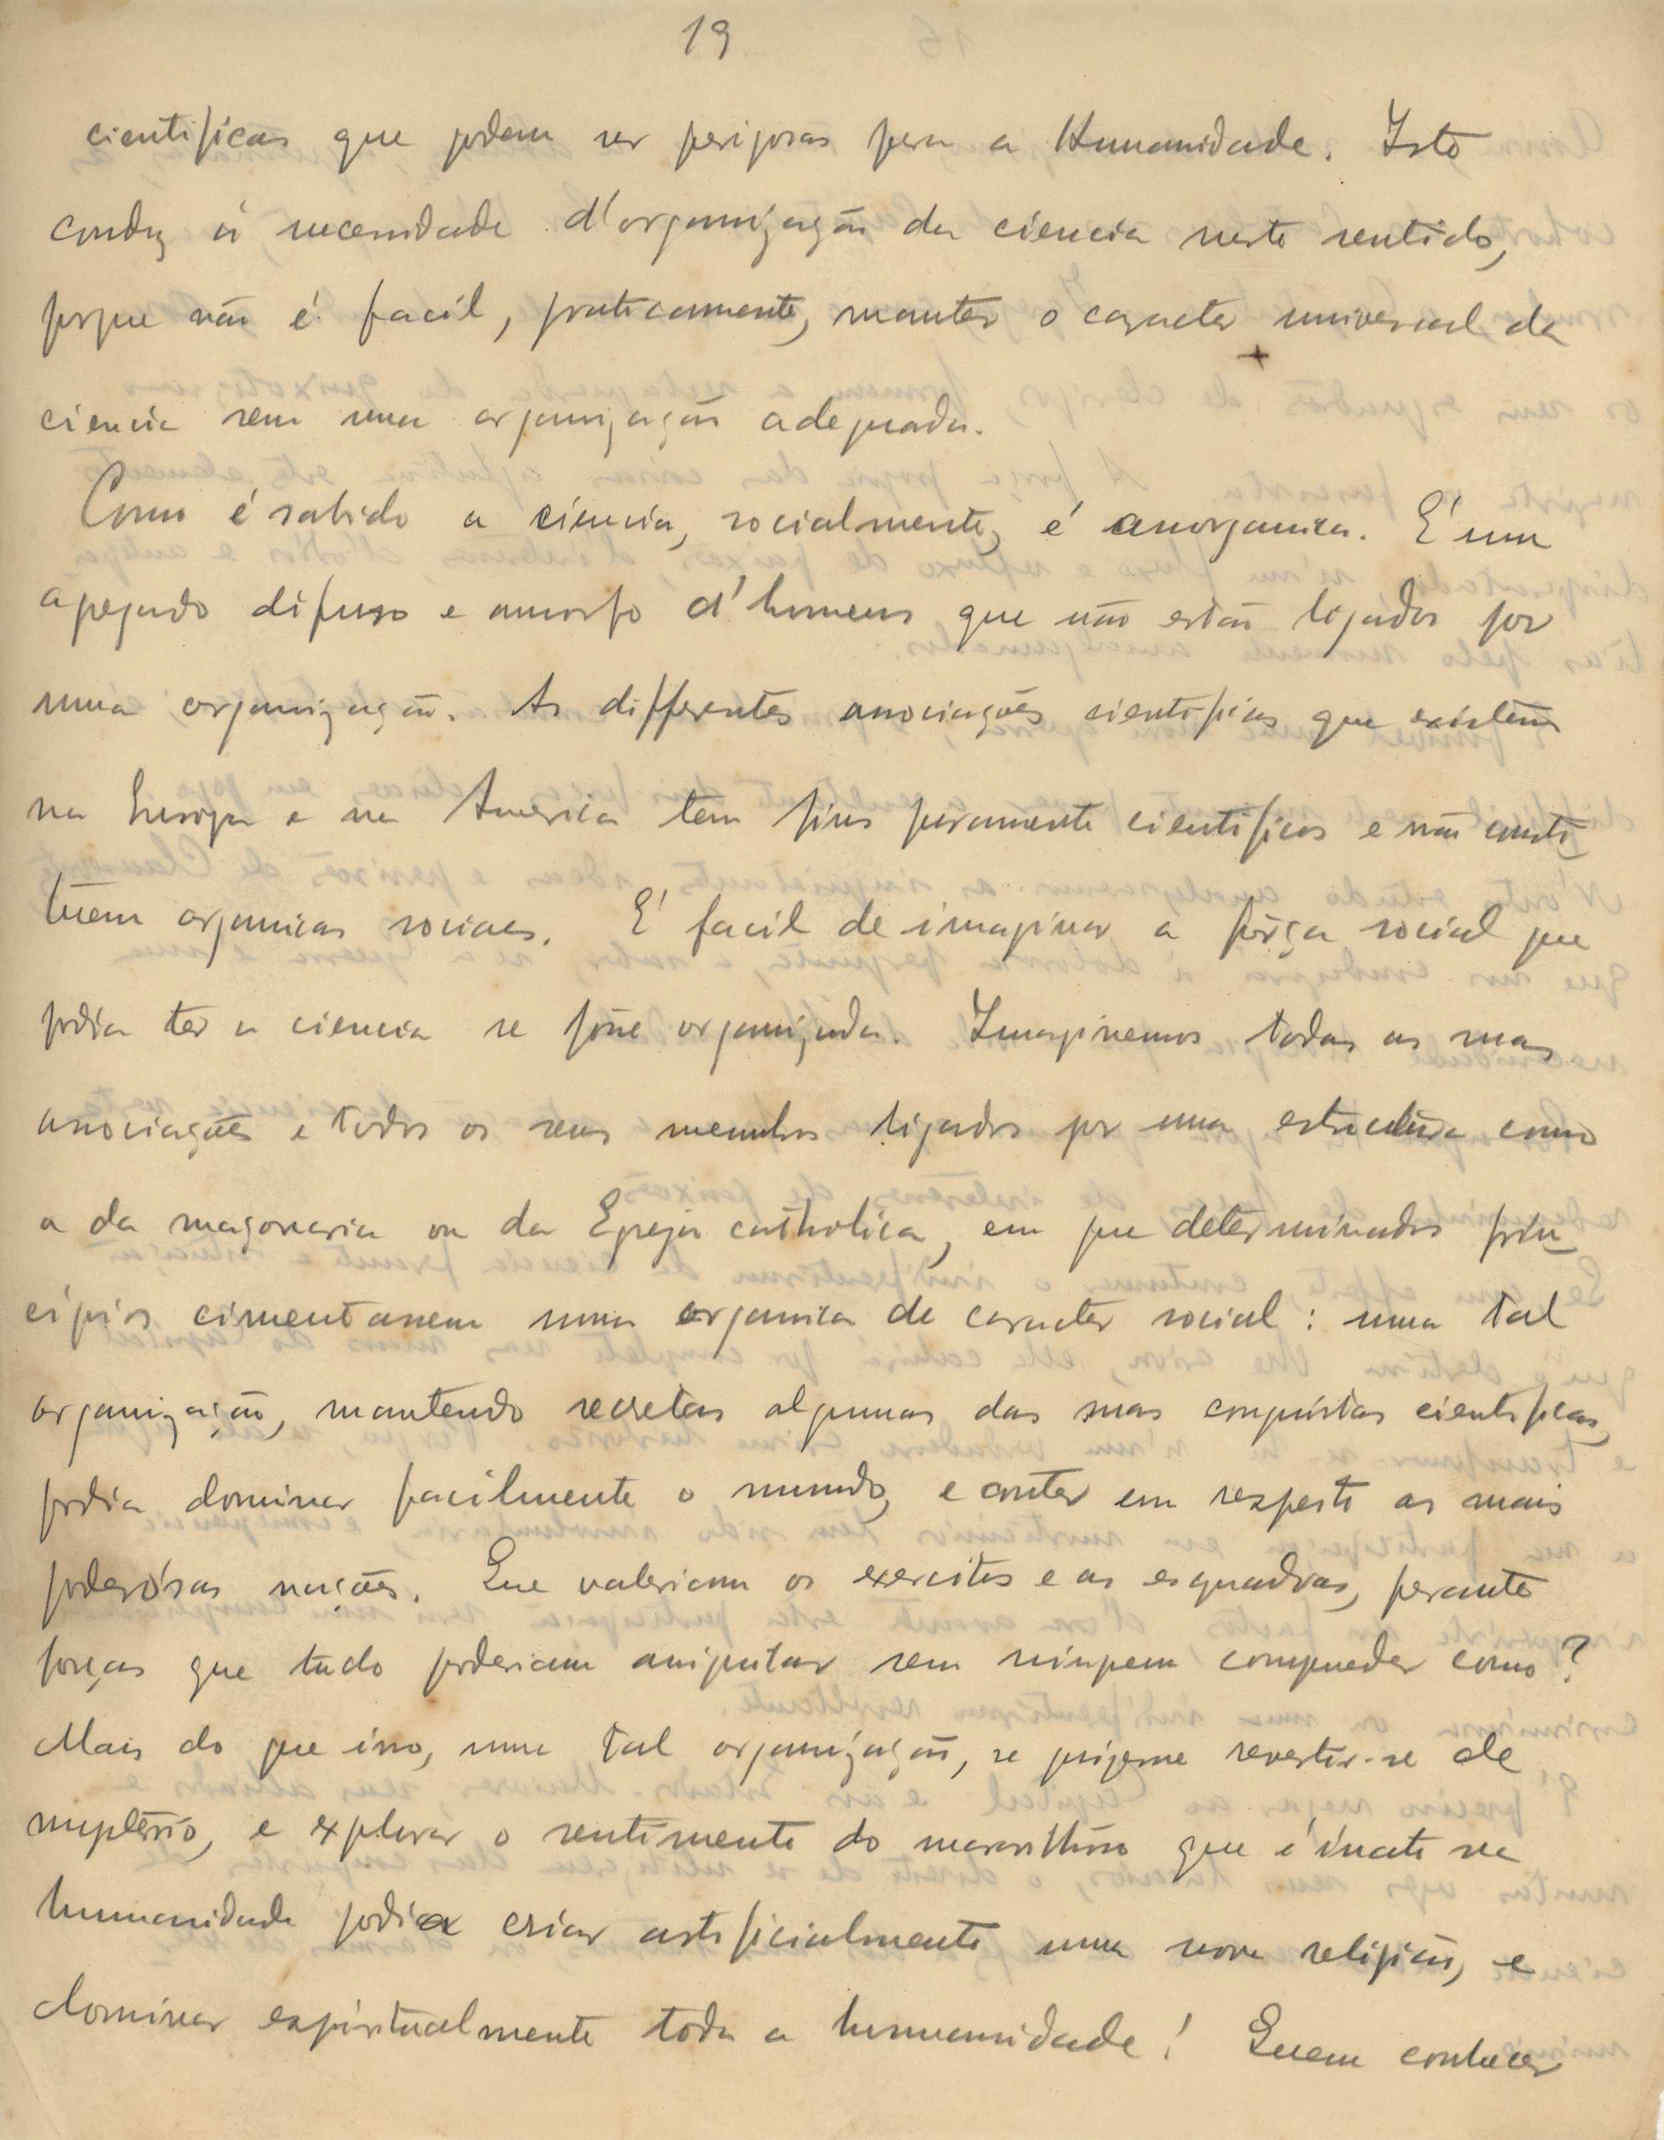 19
cientificas que podem ser perigosas para a Humanidade. Isto
conduz á necessidade d'organização da ciencia neste sentido,
porque não é facil, praticamente, manter o caracter universal da
ciencia sem uma organização adequada.
Como é sabido a ciencia, socialmente, é anorganica. É um
agregado difuso e amorfo d'homens que não estão ligados por
uma organização. As differentes associações cientificas que existem
na Europa e na America tem fins puramente cientificos e não consti-
tuem organicas sociaes. É facil de imaginar a fôrça social que
podia ter a ciencia se fôsse organizada. Imaginemos todas as suas
associações e todos os seus membros ligados por uma estructura como
a da maçonaria ou da Egreja catholica, em que determinados prin-
cipios cimentassem uma organica de caracter social: uma tal
organização, mantendo secretas algumas das suas conquistas cientificas,
podia dominar facilmente o mundo, e conter em respeito as mais
poderósas nações. Que valeriam os exercitos e as esquadras, perante
forças que tudo poderiam aniquilar sem ninguem compreender como?
Mais do que isso, uma tal organização, se quizesse revestir-se de
mysterio, e explorar o sentimento do maravilhoso que é inato na
humanidade podia criar artificialmente uma nova religião, e
dominar espiritualmente toda a humanidade! Quem conhecer